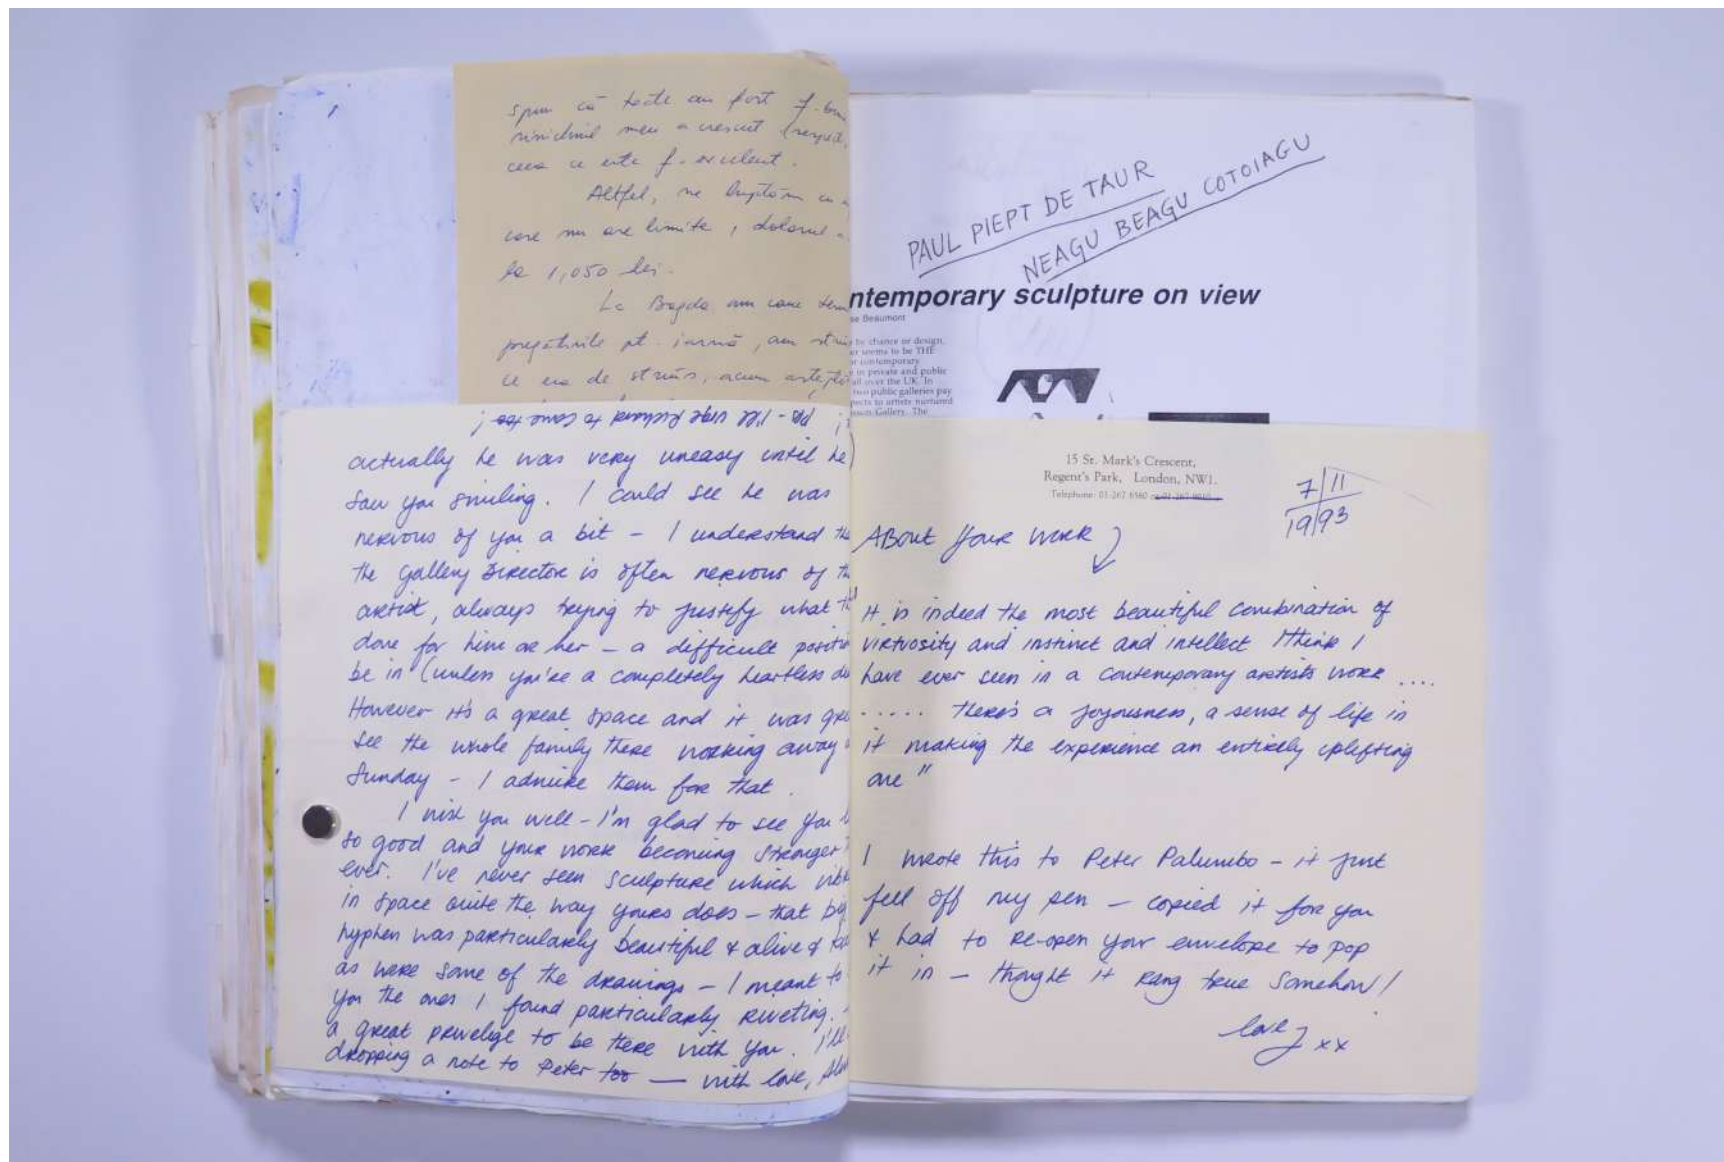 spun că toate au fost f. bune
rinichiul meu a crescut
ceea ce este f. excelent.
Altfel, ne luptăm cu
care nu are limite, dolarul
la 1,050 lei.
La Bagda am
pregătirile pt. iarnă, am
ce era de strâns, acum
PS - I'll urge Richard to come too!
actually he was very uneasy until he
saw you smiling. I could see he was
nervous of you a bit - I understand
the Gallery Director is often nervous of
artist, always trying to justify what
done for him or her - a difficult
be in (unless you're a completely heartless
However it's a great space and it was
see the whole family there working away
Sunday - I admire them for that.
I wish you well - I'm glad to see you
so good and your work becoming stronger
ever. I've never seen sculpture which
in space quite the way yours does - that big
hyphen was particularly beautiful & alive &
as were some of the drawings - I meant to
you the ones I found particularly riveting.
a great privelige to be there with you. I'll
dropping a note to Peter too — with love,
PAUL PIEPT DE TAUR
NEAGU BEAGU COTOIAGU
ntemporary sculpture on view
se Beaumont
by chance or design,
seems to be THE
contemporary
in private and public
all over the UK. In
two public galleries pay
pects to artists nurtured
Gallery. The
15 St. Mark's Crescent,
Regent's Park, London, NW1.
7/11
1993
About your work
It is indeed the most beautiful combination of
virtuosity and instinct and intellect I think I
have ever seen in a contemporary artists work ....
..... there's a joyousness, a sense of life in
it making the experience an entirely uplifting
one"
I wrote this to Peter Palumbo - it just
fell off my pen - copied it for you
& had to re-open your envelope to pop
it in - thought it rang true somehow!
love J xx